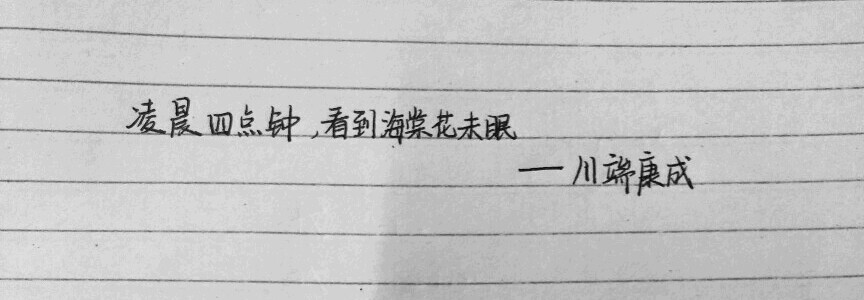 凌晨四点钟,看到海棠花未眠
——川端康成